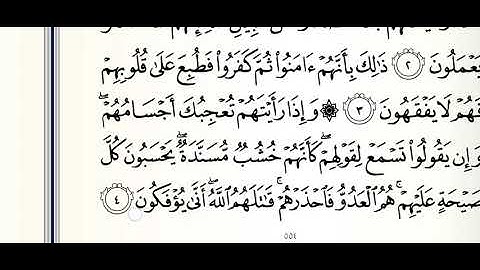 يَعْمَلُونَ ٢ ذَٰلِكَ بِأَنَّهُمْ ءَامَنُوا۟ ثُمَّ كَفَرُوا۟ فَطُبِعَ عَلَىٰ قُلُوبِهِمْ
فَهُمْ لَا يَفْقَهُونَ ٣ ۞ وَإِذَا رَأَيْتَهُمْ تُعْجِبُكَ أَجْسَامُهُمْ ۖ
وَإِن يَقُولُوا۟ تَسْمَعْ لِقَوْلِهِمْ ۖ كَأَنَّهُمْ خُشُبٌ مُّسَنَّدَةٌ ۖ يَحْسَبُونَ كُلَّ
صَيْحَةٍ عَلَيْهِمْ ۚ هُمُ ٱلْعَدُوُّ فَٱحْذَرْهُمْ ۚ قَٰتَلَهُمُ ٱللَّهُ ۖ أَنَّىٰ يُؤْفَكُونَ ٤
٥٥٤